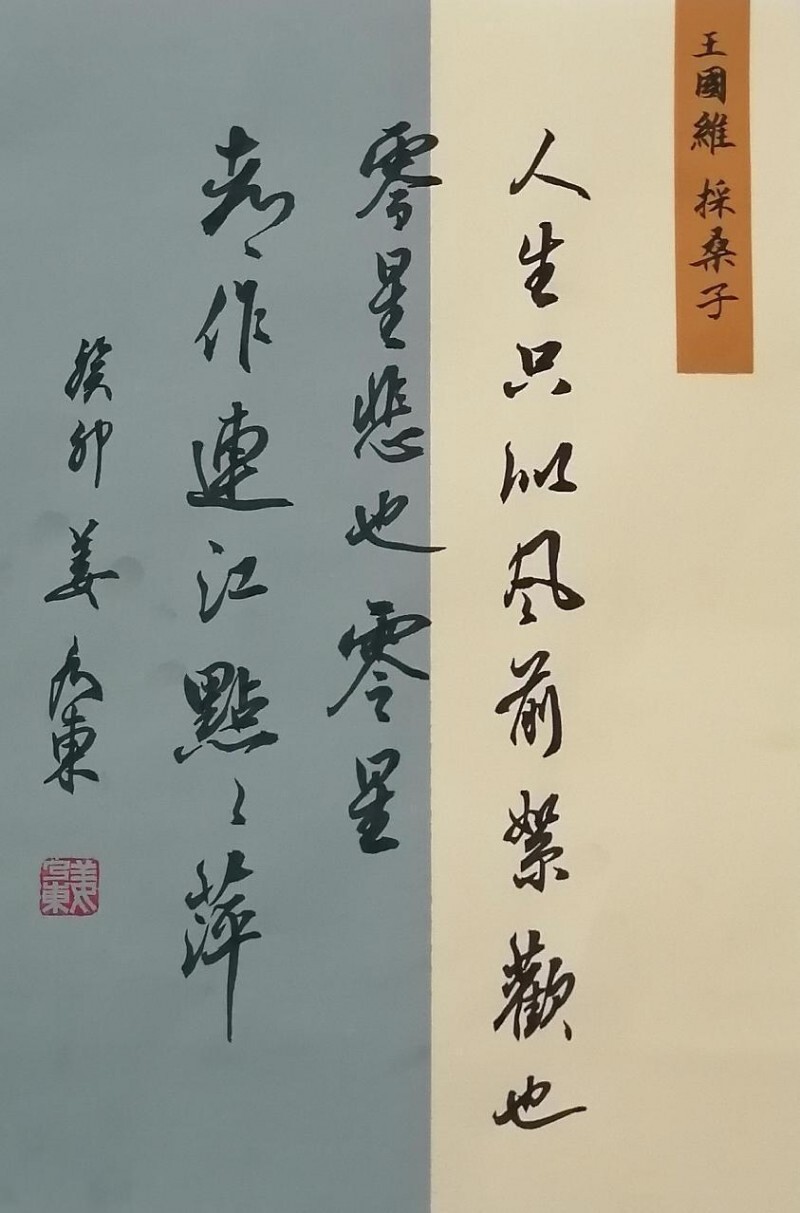 王國維 採桑子
人生只似風前絮歡也
零星悲也零星
都作連江點〻萍
癸卯 姜 東